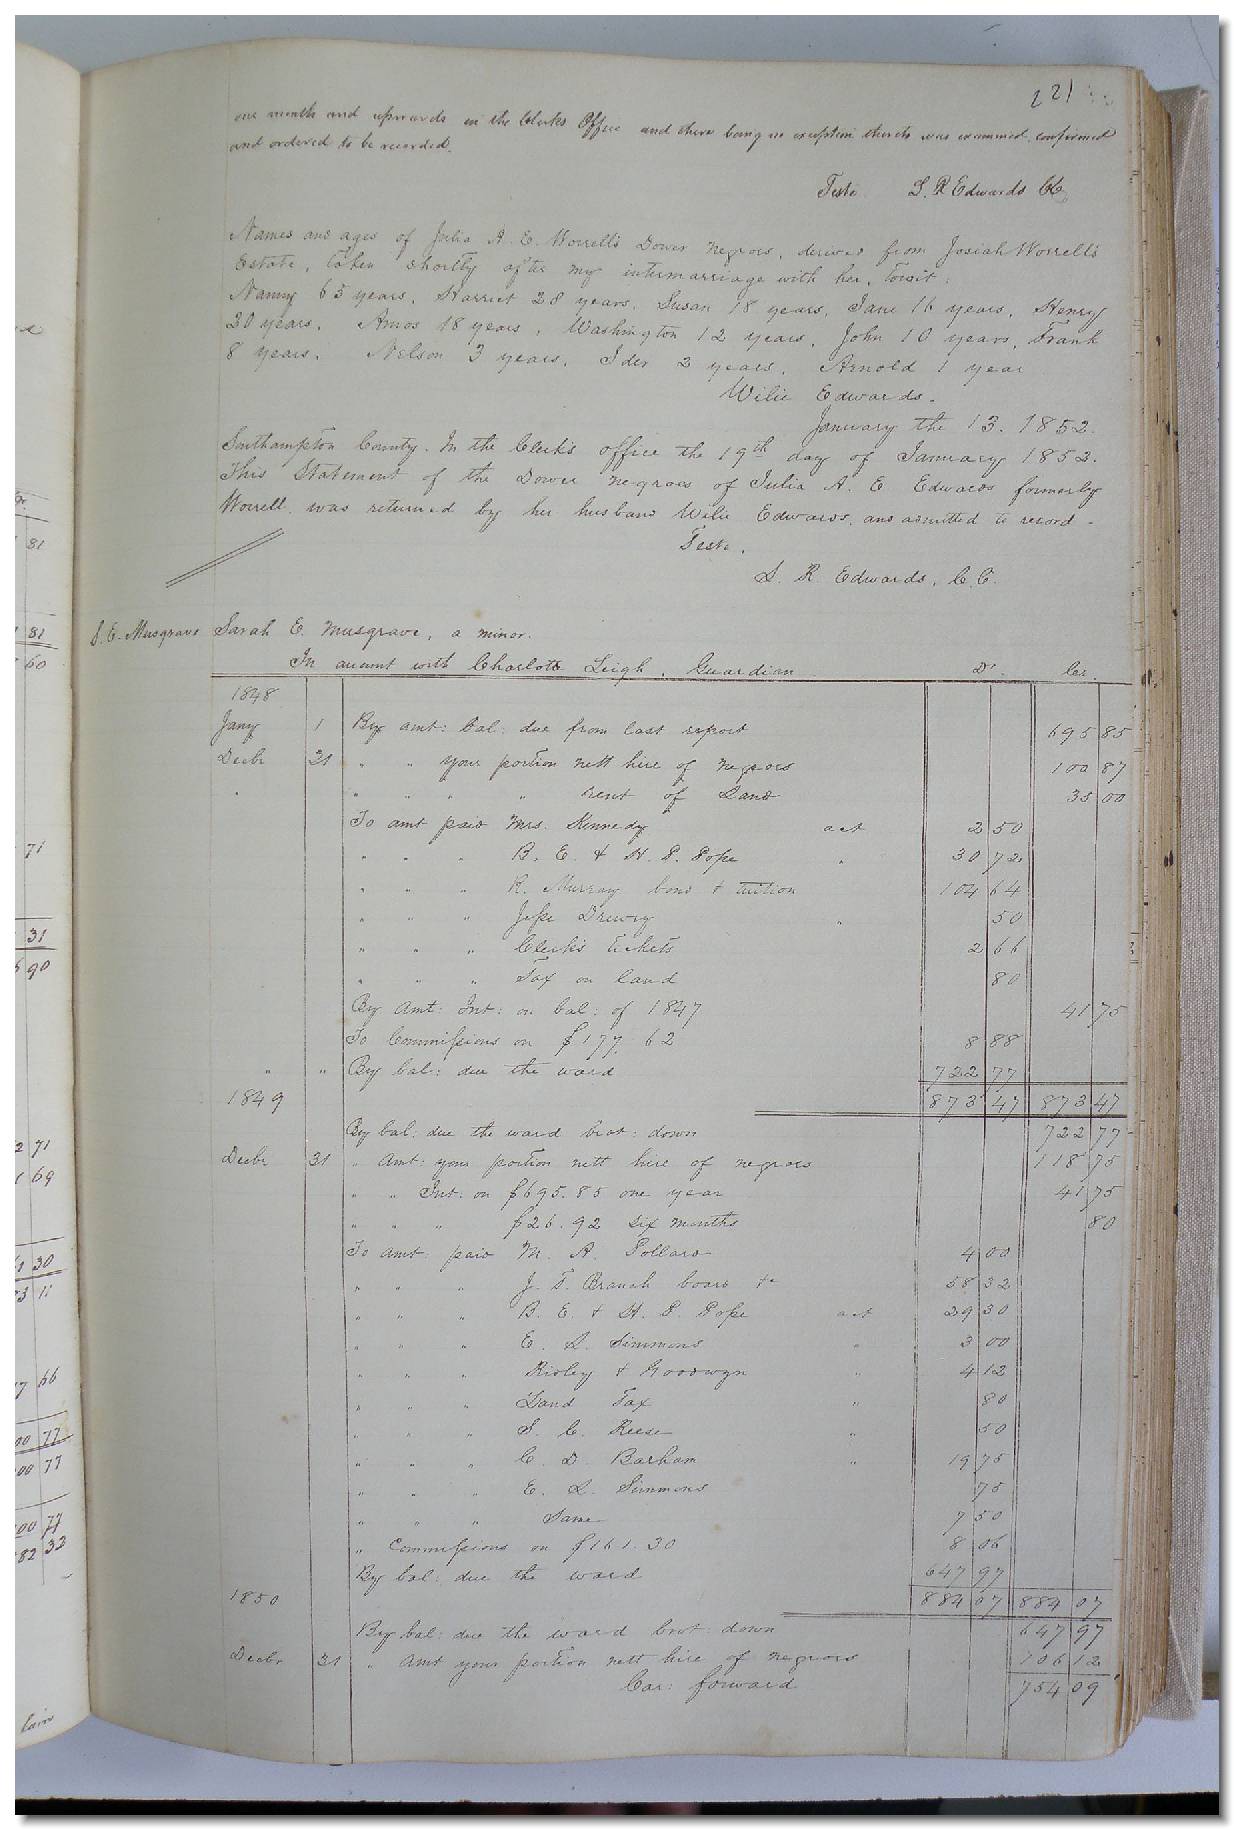 221
one month and upwards in the Clerks Office and there being no exception thereto was examined, confirmed
and ordered to be recorded.
Teste. L. R Edwards CC
Names and ages of Julia A. E. Worrell's Dower negroes, derived from Josiah Worrell's
Estate, taken shortly after my intermarriage with her, towit:
Nanny 65 years, Harriet 28 years. Susan 18 years, Jane 16 years, Henry
30 years. Amos 18 years, Washington 12 years, John 10 years, Frank
8 years. Nelson 3 years, Ider 2 years, Arnold 1 year
Wilie Edwards.
January the 13. 1852.
Southampton County. In the Clerk's office the 19th day of January 1852.
This Statement of the Dower negroes of Julia A. E Edwards formerly
Worrell was returned by her husband Wilie Edwards, and admitted to record -
Teste.
L. R Edwards, C.C.
S. E. Musgrave Sarah E. Musgrave, a minor.
In account with Charlotte Leigh, Guardian Dr. Cr.
1848
Jany 1 By amt: bal: due from last report 695 85
Decbr 31 " " your portion nett hire of negroes 100 87
" " " " " rent of Land 35 00
To amt paid Mrs. Kennedy act 2 50
" " " B. E. & H. P. Pope " 30 72
" " " R. Murray bond & tuition 104 64
" " " Jesse Drewry " 50
" " " Clerk's tickets 2 66
" " " Tax on land 80
By Amt: Int: on bal: of 1847 41 75
To Commissions on $177.62 8 88
" " By bal: due the ward 722 77
1849 873 47 873 47
By bal: due the ward brot: down 722 77
Decbr 31 " Amt: your portion nett hire of negroes 118 75
" " Int: on $695.85 one year 41 75
" " " $26.92 six months 80
To amt paid M. A. Pollard 4 00
" " " J. T. Branch board &c 58 32
" " " B. E. & H. P. Pope act 29 30
" " " E. L. Simmons " 3 00
" " " Ridley & Goodwyn " 4 12
" " " Land Tax " 80
" " " S. C. Reese " 50
" " " C. D. Barham " 19 75
" " " E. L. Simmons 75
" " " Same 7 50
" Commissions on $161.30 8 06
By bal: due the ward 647 97
1850 884 07 884 07
By bal: due the ward brot: down 647 97
Decbr 31 " Amt your portion nett hire of negroes 106 12
Car: forward 754 09
81
81
60
71
31
90
2 71
69
30
3 11
7 66
00 77
00 77
00 77
82 32